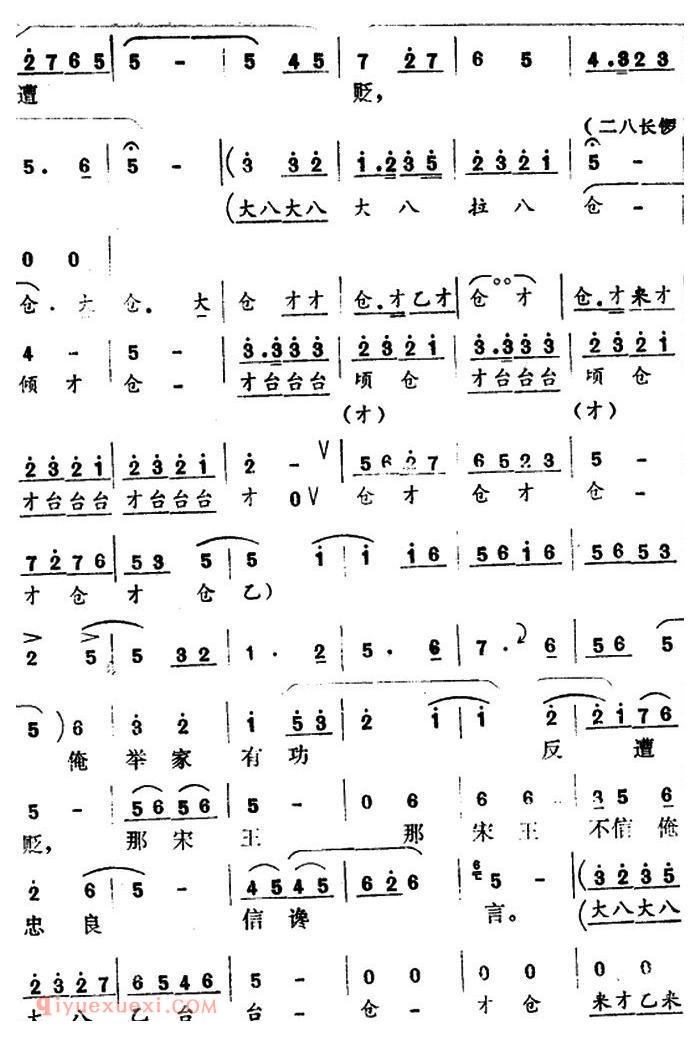 2 7 6 5 | 5 - | 5 4 5 | 7 2 7 | 6 5 | 4 . 3 2 3
遭 贬，
(二八长锣
5 . 6 | 5 - | ( 3 3 2 | 1 . 2 3 5 | 2 3 2 1 | 5 -
(大八大八 大 八 拉 八 仓 -
0 0 |
仓 . 大 仓 . 大 | 仓 才才 | 仓 . 才乙才 | 仓 才 | 仓 . 才来才
4 - | 5 - | 3 . 3 3 3 | 2 3 2 1 | 3 . 3 3 3 | 2 3 2 1
倾 才 仓 - 才台台台 顷 仓 才台台台 顷 仓
(才) (才)
2 3 2 1 | 2 3 2 1 | 2 - V | 5 6 2 7 | 6 5 2 3 | 5 -
才台台台 才台台台 才 0 V 仓 才 仓 才 仓 -
7 2 7 6 | 5 3 5 | 5 1 | 1 1 6 | 5 6 1 6 | 5 6 5 3
才 仓 才 仓 乙)
2 5 | 5 3 2 | 1 . 2 | 5 . 6 | 7 . 6 | 5 6 5
5 ) 6 | 3 2 | 1 5 3 | 2 1 | 1 2 | 2 1 7 6
俺 举 家 有 功 反 遭
5 - | 5 6 5 6 | 5 - | 0 6 | 6 6 | 3 5 6
贬， 那 宋 王 那 宋 王 不信 俺
2 6 | 5 - | 4 5 4 5 | 6 2 6 | 5 - | ( 3 2 3 5
忠 良 信 谗 言。 (大八大八
2 3 2 7 | 6 5 4 6 | 5 - | 0 0 | 0 0 | 0 0
大 八 乙 台 台 - 仓 - 才 仓 来才乙来
qiyuexuexi.com